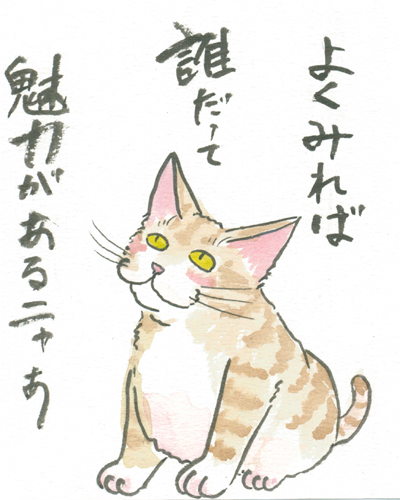 よくみれば
誰だって
魅力があるニャあ